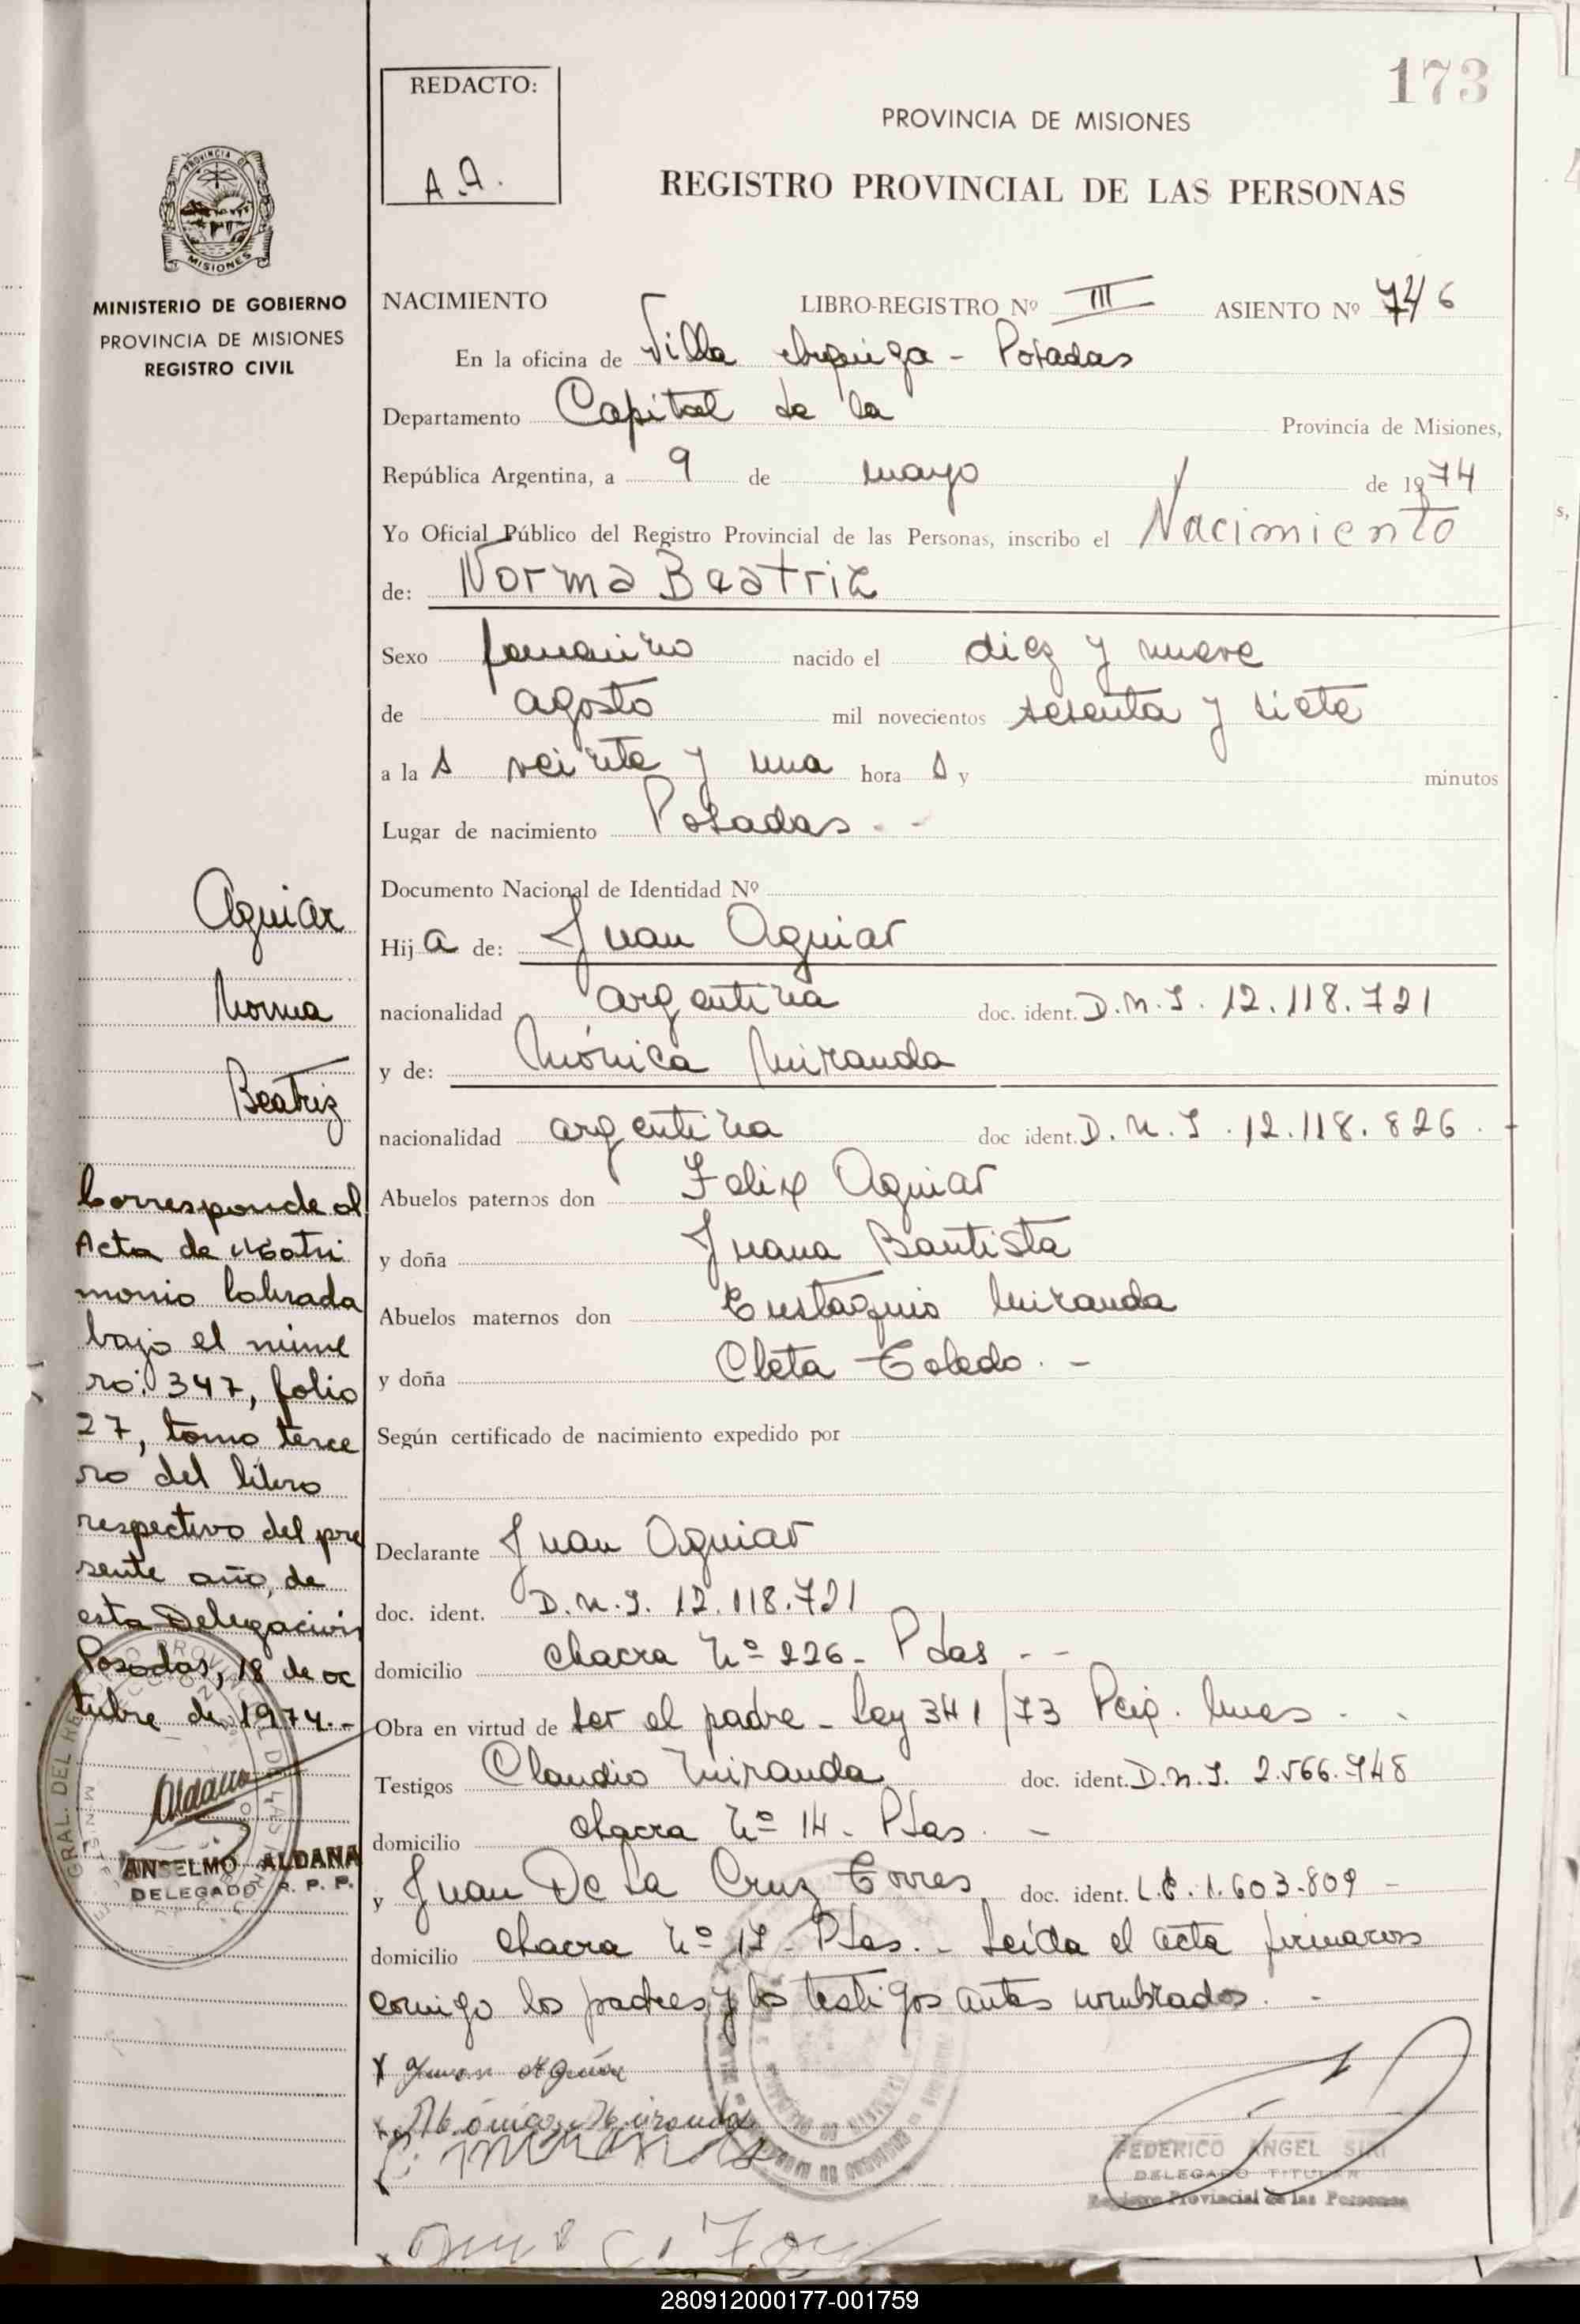 173
REDACTO:
A.A.
PROVINCIA DE MISIONES
REGISTRO PROVINCIAL DE LAS PERSONAS
PROVINCIA DE
MISIONES
MINISTERIO DE GOBIERNO
PROVINCIA DE MISIONES
REGISTRO CIVIL
NACIMIENTO LIBRO-REGISTRO Nº III ASIENTO Nº 746
En la oficina de Villa Urquiza - Posadas
Departamento Capital de la Provincia de Misiones,
República Argentina, a 9 de mayo de 1974
Yo Oficial Público del Registro Provincial de las Personas, inscribo el Nacimiento
de: Norma Beatriz
Sexo femenino nacido el diez y nueve
de agosto mil novecientos sesenta y siete
a la s veinte y una hora s y minutos
Lugar de nacimiento Posadas - -
Documento Nacional de Identidad Nº
Hij a de: Juan Aguiar
nacionalidad argentina doc. ident. D.N.I. 12.118.721
y de: Mónica Miranda
nacionalidad argentina doc ident. D.N.I. 12.118.826.
Abuelos paternos don Felix Aguiar
y doña Juana Bautista
Abuelos maternos don Eustaquio Miranda
y doña Cleta Toledo. -
Según certificado de nacimiento expedido por
Declarante Juan Aguiar
doc. ident. D.N.I. 12.118.721
domicilio chacra Nº 226- Pdas - -
Obra en virtud de ser el padre - Ley 341/73
Testigos Claudio Miranda doc. ident. D.N.I. 2.566.748
domicilio chacra Nº 14 - Pdas. -
y Juan De La Cruz Torres doc. ident. L.E. 1.603.809 -
domicilio chacra Nº Pdas. - Leida el acta firmaron
conmigo los padres y los testigos antes nombrados. -
x Juan Aguiar
x Mónica Miranda
C. Miranda
FEDERICO ANGEL SIRI
DELEGADO TITULAR
Registro Provincial de las Personas
Aguiar
Norma
Beatriz
Corresponde al
Acta de Matri
monio labrada
bajo el núme
ro: 347, folio
27, tomo terce
ro del libro
respectivo del pre
sente año, de
esta Delegación
Posadas, 18 de oc
tubre de 1974.-
Aldana
ANSELMO ALDANA
DELEGADO R. P. P.
280912000177-001759